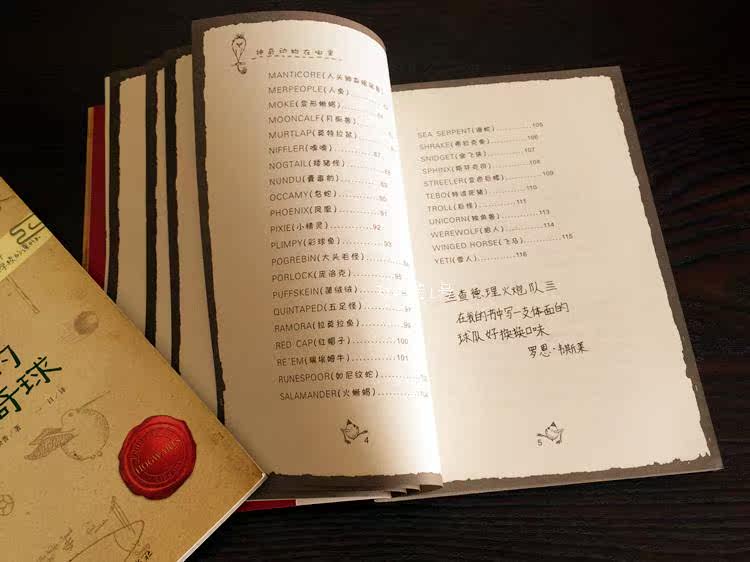 神奇动物在哪里
MANTICORE(人头狮身蝎尾兽)
MERPEOPLE(人鱼)
MOKE(变形蜥蜴)
MOONCALF(月痴兽)
MURTLAP(莫特拉鼠)
NIFFLER(嗅嗅) 87
NOGTAIL(矮猪怪)
NUNDU(囊毒豹) 89
OCCAMY(鸟蛇) 90
PHOENIX(凤凰) 91
PIXIE(小精灵) 92
PLIMPY(彩球鱼) 93
POGREBIN(大头毛怪)
PORLOCK(庞洛克) 95
PUFFSKEIN(蒲绒绒)
QUINTAPED(五足怪)
RAMORA(拉莫拉鱼) 99
RED CAP(红帽子) 100
RE'EM(埃姆牛) 101
RUNESPOOR(如尼纹蛇) 102
SALAMANDER(火蜥蜴) 104
4
SEA SERPENT(海蛇) 105
SHRAKE(希拉克鱼) 106
SNIDGET(金飞侠) 107
SPHINX(斯芬克司) 108
STREELER(变色巨螺) 109
TEBO(特波疣猪) 110
TROLL(巨怪) 111
UNICORN(独角兽) 113
WEREWOLF(狼人) 114
WINGED HORSE(飞马) 115
YETI(雪人) 116
三查德理火炮队三
在我的书中写一支体面的
球队好换换口味
罗恩·韦斯莱
5
奇球
著
译
HOGWARTS